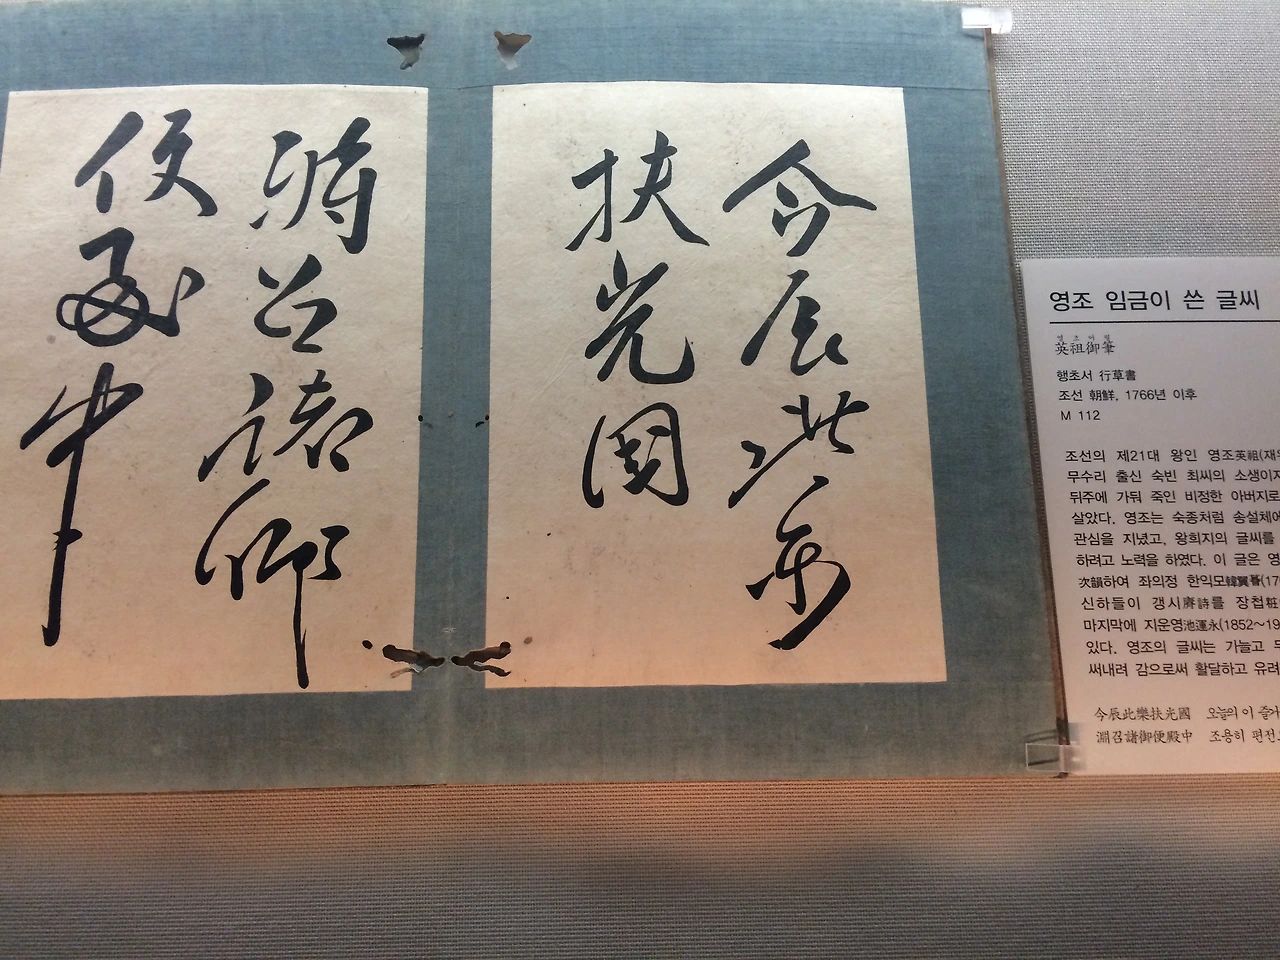 今辰此樂
扶光國
淵召諸御
便殿中
영조 임금이 쓴 글씨
영조어필
英祖御筆
행초서 行草書
조선 朝鮮, 1766년 이후
M 112
조선의 제21대 왕인 영조英祖(재위
무수리 출신 숙빈 최씨의 소생이자
뒤주에 가둬 죽인 비정한 아버지로
살았다. 영조는 숙종처럼 송설체에
관심을 지녔고, 왕희지의 글씨를
하려고 노력을 하였다. 이 글은 영
次韻하여 좌의정 한익모韓翼謩(17
신하들이 갱시賡詩를 장첩粧
마지막에 지운영池運永(1852~19
있다. 영조의 글씨는 가늘고
써내려 감으로써 활달하고 유려
今辰此樂扶光國 오늘의 이 즐거
淵召諸御便殿中 조용히 편전으